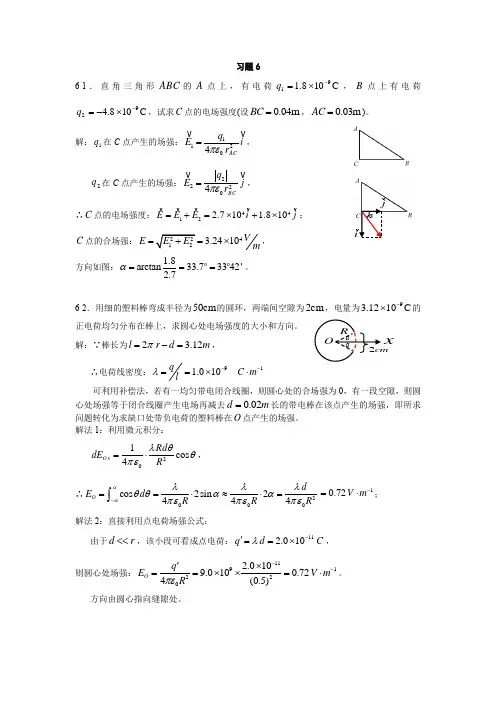 习题6
6-1．直角三角形ABC的A点上，有电荷q₁ = 1.8×10⁻⁹C，B点上有电荷
q₂ = −4.8×10⁻⁹C，试求C点的电场强度(设BC = 0.04m，AC = 0.03m)。
解：q₁在C点产生的场强：E₁ = q₁/(4πε₀r²_AC) i，
A
C
B
q₂在C点产生的场强：E₂ = |q₂|/(4πε₀r²_BC) j，
A
∴C点的电场强度：E = E₁ + E₂ = 2.7×10⁴ i + 1.8×10⁴ j；
C
B
j
i
C点的合场强：E = √(E₁² + E₂²) = 3.24×10⁴ V/m，
方向如图：α = arctan 1.8/2.7 = 33.7° = 33°42'。
6-2．用细的塑料棒弯成半径为50cm的圆环，两端间空隙为2cm，电量为3.12×10⁻⁹C的
正电荷均匀分布在棒上，求圆心处电场强度的大小和方向。
解：∵棒长为l = 2πr − d = 3.12m，
R
O
X
2cm
∴电荷线密度：λ = q/l = 1.0×10⁻⁹ C·m⁻¹
可利用补偿法，若有一均匀带电闭合线圈，则圆心处的合场强为0，有一段空隙，则圆
心处场强等于闭合线圈产生电场再减去d = 0.02m长的带电棒在该点产生的场强，即所求
问题转化为求缺口处带负电荷的塑料棒在O点产生的场强。
解法1：利用微元积分：
dE_Ox = 1/(4πε₀) · λRdθ/R² cosθ，
∴E_O = ∫_{−α}^{α} λ/(4πε₀R) cosθdθ = λ/(4πε₀R) · 2sinα ≈ λ/(4πε₀R) · 2α = λd/(4πε₀R²) = 0.72 V·m⁻¹；
解法2：直接利用点电荷场强公式：
由于d << r，该小段可看成点电荷：q′ = λd = 2.0×10⁻¹¹C，
则圆心处场强：E_O = q′/(4πε₀R²) = 9.0×10⁹ × 2.0×10⁻¹¹/(0.5)² = 0.72 V·m⁻¹。
方向由圆心指向缝隙处。